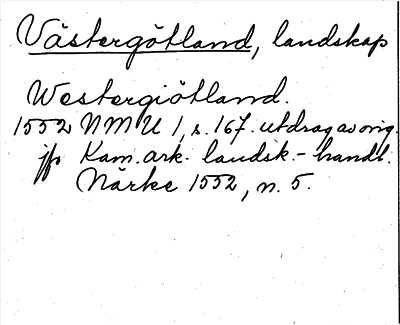 Västergötland, landskap
Westergiötland.
1552 NMU 1, s. 167. utdrag av orig.
jfr Kam. ark. landsk. - handl.
Närke 1552, n. 5.